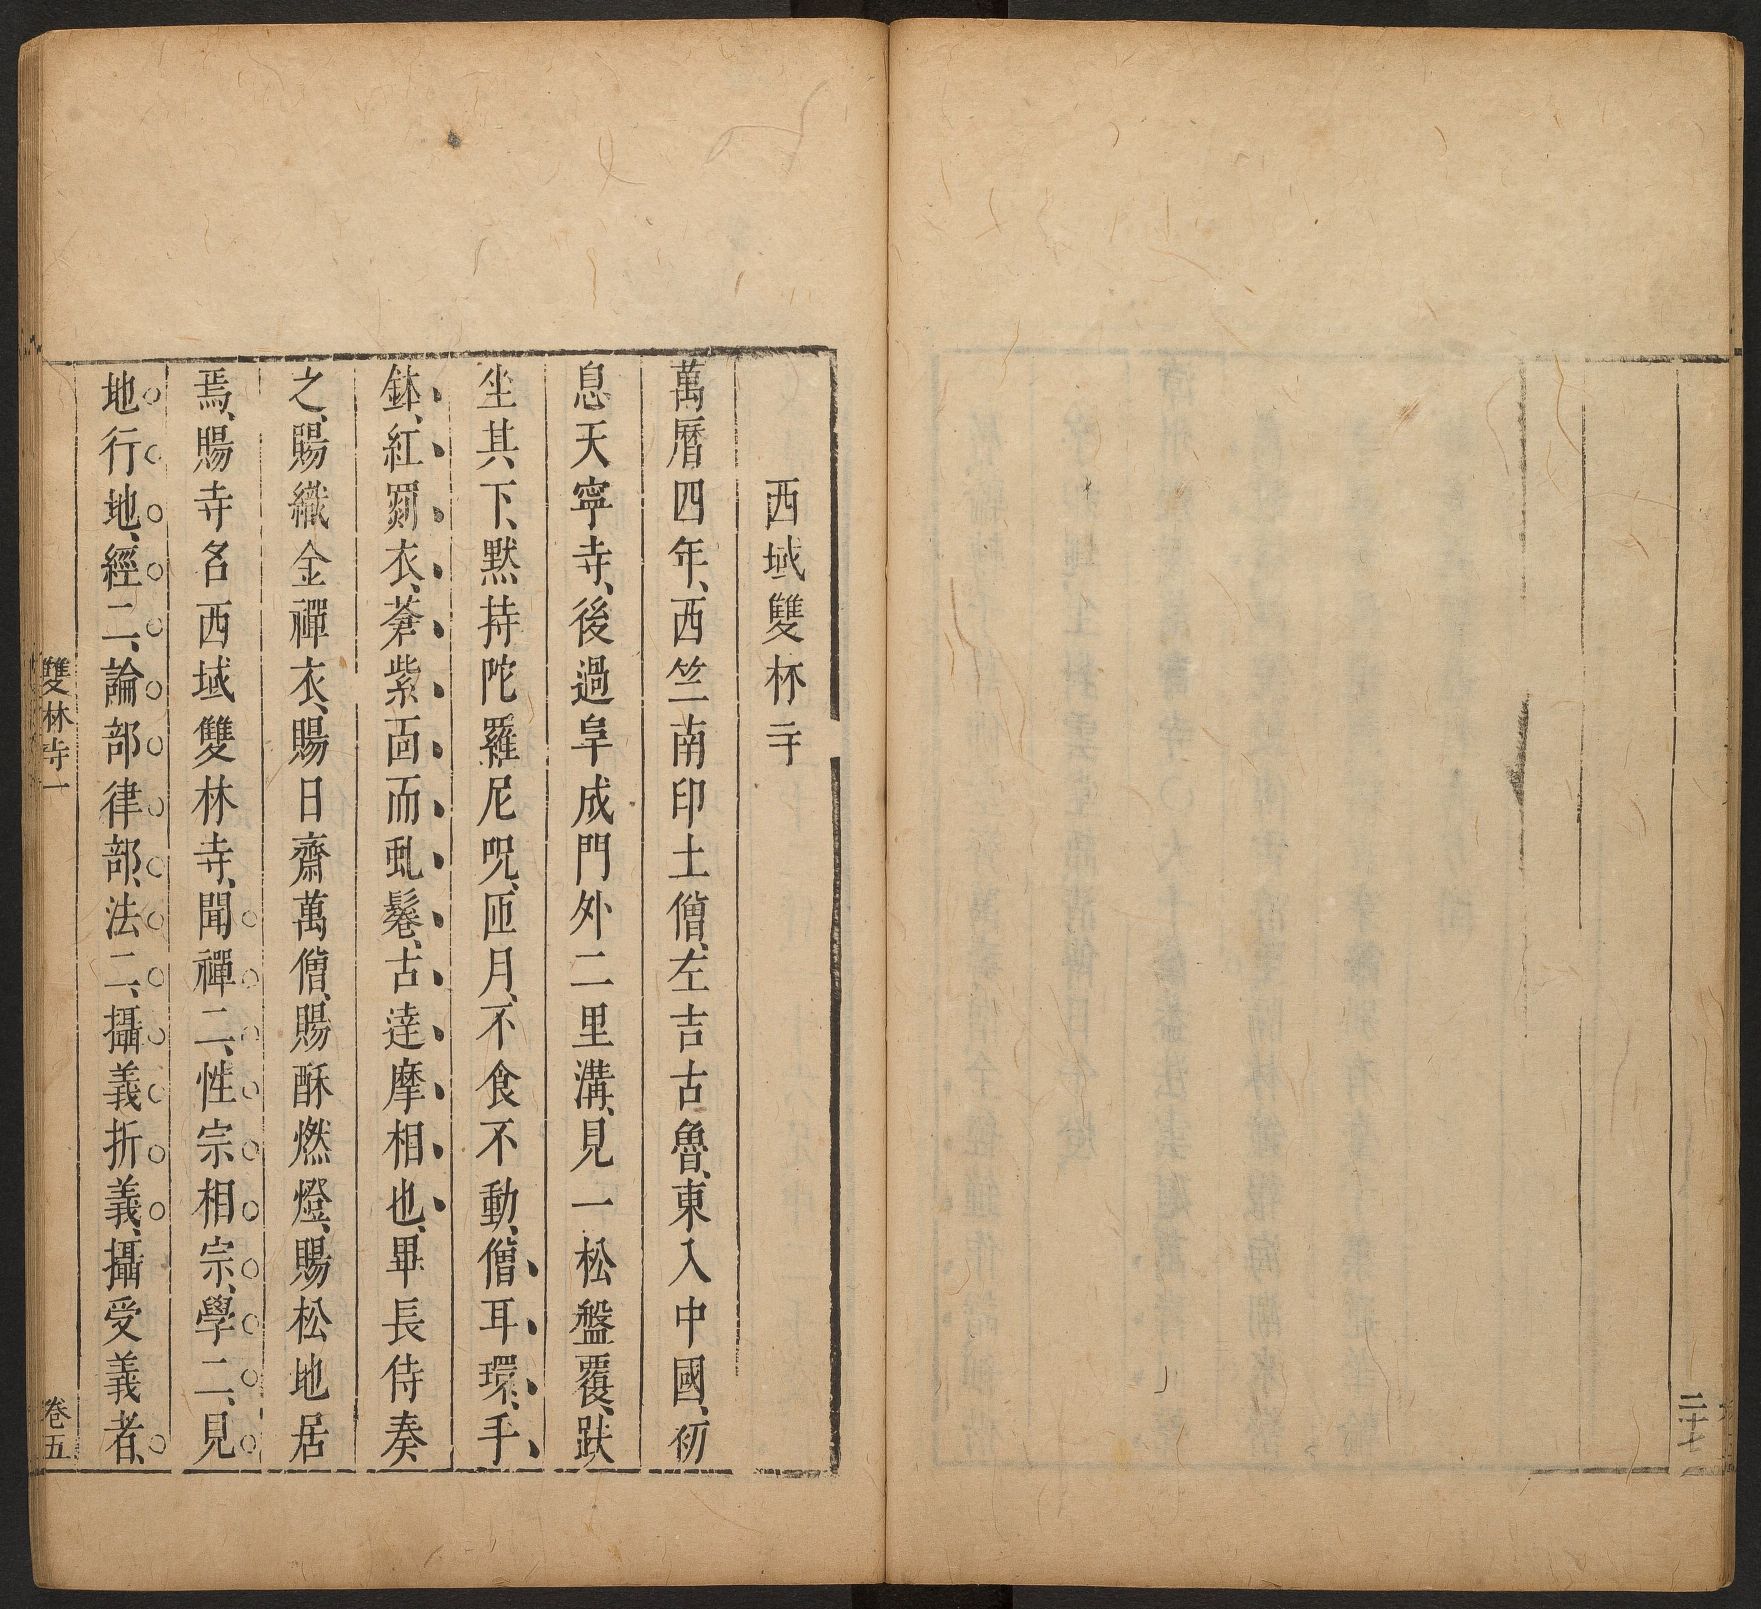 二十七
西域雙林寺
萬曆四年、西竺南印土僧、左吉古魯、東入中國、初
息天寧寺、後過阜成門外二里溝、見一松盤覆、趺
坐其下、默持陀羅尼呪、匝月、不食不動、僧耳環、手
鉢、紅罽衣、蒼紫面而虬鬈、古達摩相也、畢長侍奏
之、賜織金禪衣、賜日齋萬僧、賜酥燃燈、賜松地居
焉、賜寺名西域雙林寺、聞禪二、性宗相宗、學二、見
地行地、經二、論部律部、法二、攝義折義、攝受義者、
雙林寺一
卷五